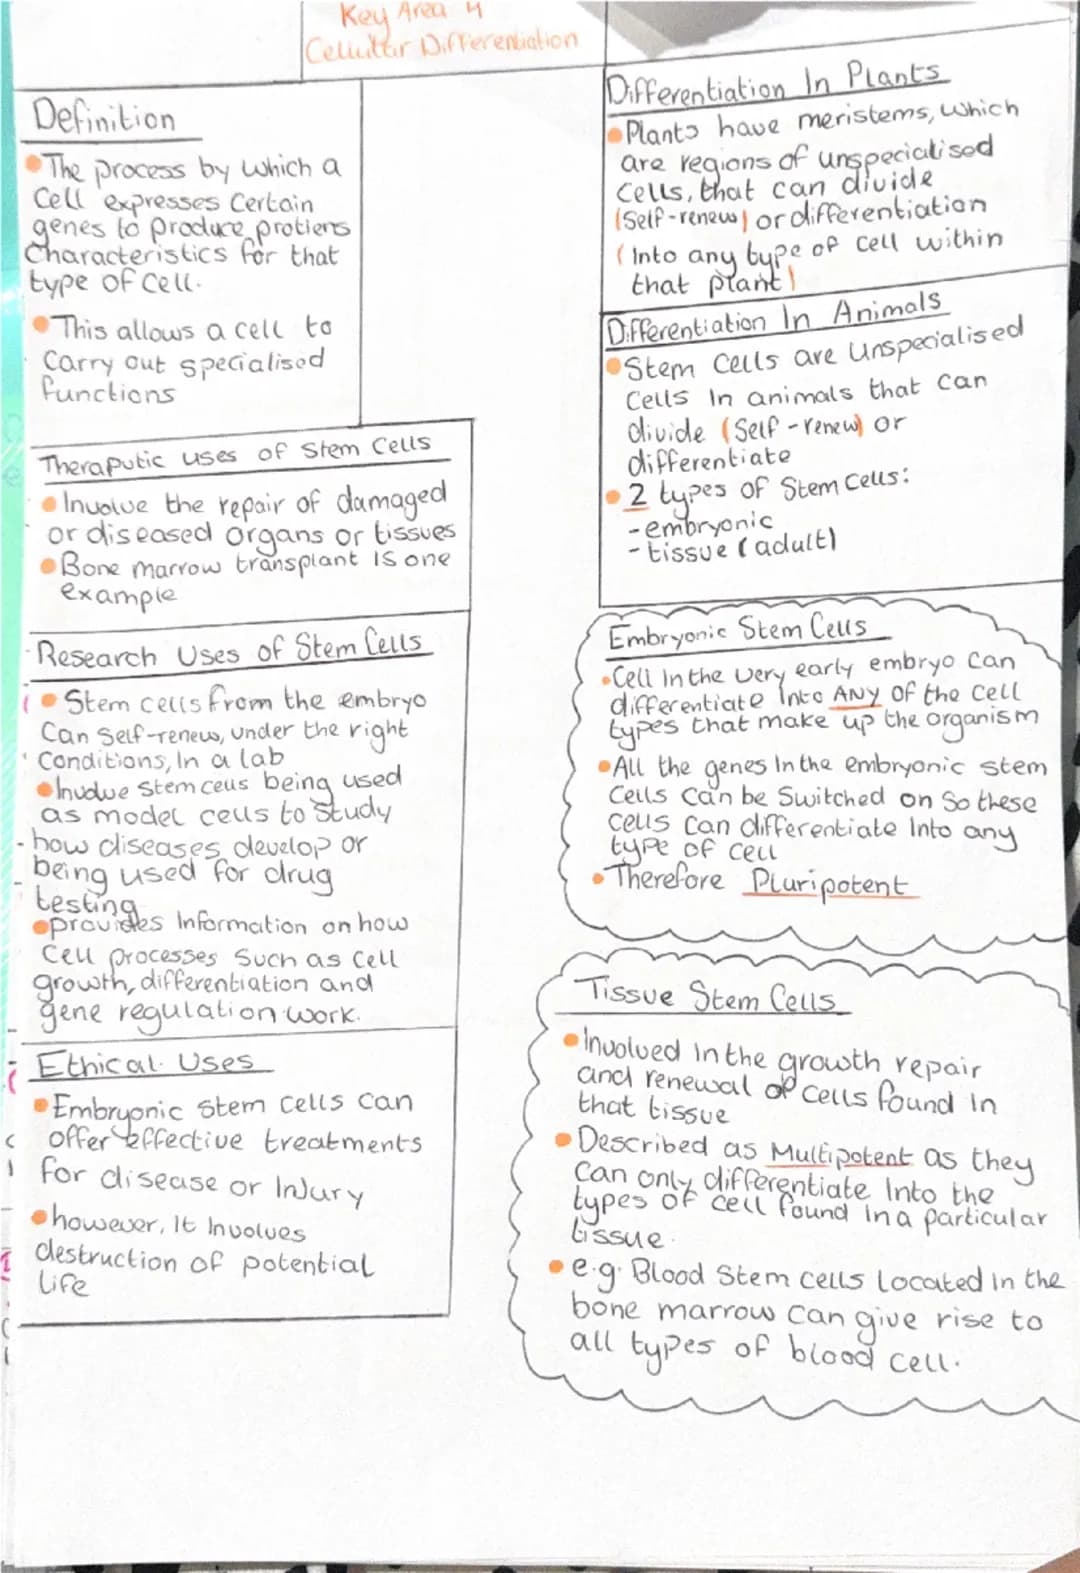 Key Area 4
Cellular Differentiation
Definition
The process by which a
Cell expresses Certain
genes to produce protiens
Characteristics for that
type of cell.
This allows a cell to
Carry out specialised
functions
Theraputic uses of Stem Cells
Involve the repair of damaged
or diseased organs or tissues
Bone marrow transplant is one
example
Research Uses of Stem Cells
Stem cells from the embryo
Can Self-renew, under the right
Conditions, In a lab
Involve stem cells being used
as model cells to study
how diseases develop or
being used for drug
testing
provides Information on how
Cell processes Such as cell
growth, differentiation and
gene regulation work.
Ethical Uses
Embryonic stem cells can
offer effective treatments
for disease or Injury
however, It Involves
destruction of potential
life
Differentiation In Plants
Plants have meristems, which
are regions of unspecialised
cells, that can divide
(Self-renew) or differentiation
(Into any type of cell within
that plant)
Differentiation In Animals
Stem Cells are Unspecialised
Cells In animals that can
divide (Self-renew) or
differentiate
2 types of Stem Cells:
-embryonic
-tissue (adult)
Embryonic Stem Cells
Cell In the very early embryo Can
differentiate Into ANY of the cell
types that make up the organism
All the genes In the embryonic stem
Cells Can be Switched on So these
cells Can differentiate Into any
type of cell
Therefore Pluripotent
Tissue Stem Cells
Involved In the growth repair
and renewal of cells found In
that tissue
Described as Multipotent as they
Can only differentiate Into the
types of cell found in a particular
tissue.
e.g. Blood Stem cells Located In the
bone marrow can give rise to
all types of blood cell.